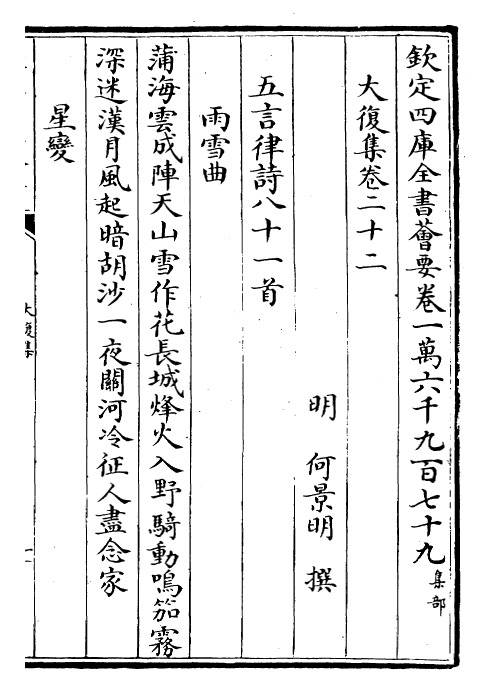 欽定四庫全書薈要卷一萬六千九百七十九 集部
大復集卷二十二
明 何景明 撰
五言律詩八十一首
雨雪曲
蒲海雲成陣天山雪作花長城烽火入野騎動鳴笳霧
深迷漢月風起暗胡沙一夜關河冷征人盡念家
星變
大復集
一